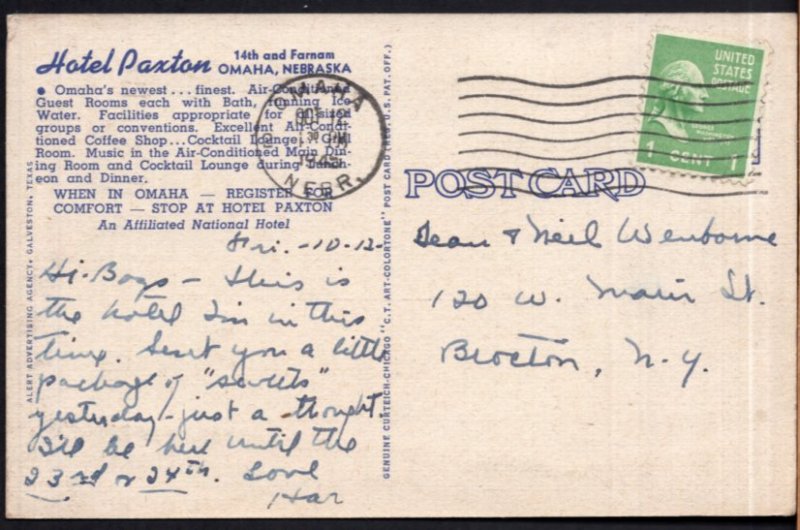 Hotel Paxton 14th and Farnam
OMAHA, NEBRASKA
● Omaha's newest . . . finest. Air-Conditioned
Guest Rooms each with Bath, running Ice
Water. Facilities appropriate for all sized
groups or conventions. Excellent Air-Condi-
tioned Coffee Shop . . . Cocktail Lounge . . . Grill
Room. Music in the Air-Conditioned Main Din-
ing Room and Cocktail Lounge during Lunch-
eon and Dinner.
WHEN IN OMAHA — REGISTER FOR
COMFORT — STOP AT HOTEL PAXTON
An Affiliated National Hotel
Fri. - 10-12-
Hi-Boys - This is
the hotel I'm in this
time. Sent you a little
package of "sweets"
yesterday - just a thought.
I'll be here until the
23rd or 24th. Love
Har
ALERT ADVERTISING AGENCY, GALVESTON, TEXAS
GENUINE CURTEICH-CHICAGO "C.T. ART-COLORTONE" POST CARD (REG. U.S. PAT. OFF.)
OMAHA
OCT 12
PM
1945
NEBR.
UNITED
STATES
POSTAGE
GEORGE
WASHINGTON
1 CENT 1
POST CARD
Dean & Neil Wenborne
120 W. Main St.
Brocton, N.Y.